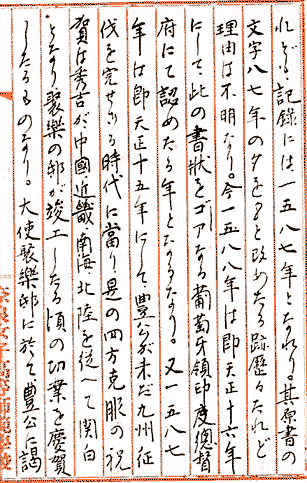 れども、記録には一五八七年となれり。其原書の
文字八七年の夕を夕と改めたる跡歴々たれど
理由は不明なり。今一五八八年は即天正十六年
にして、此の書状をゴアなる葡萄牙領印度總督
府にて認めたる年となるなり。又一五八七
年は即天正十五年にして豊公が未だ九州征
伐を完せざる時代に當り、是の四方克服の祝
賀は秀吉が中國近畿南海北陸を従へて関白
となり聚樂の邸が竣工したる頃の功業を慶賀
したるものなり。大使聚樂邸に於て豊公に謁